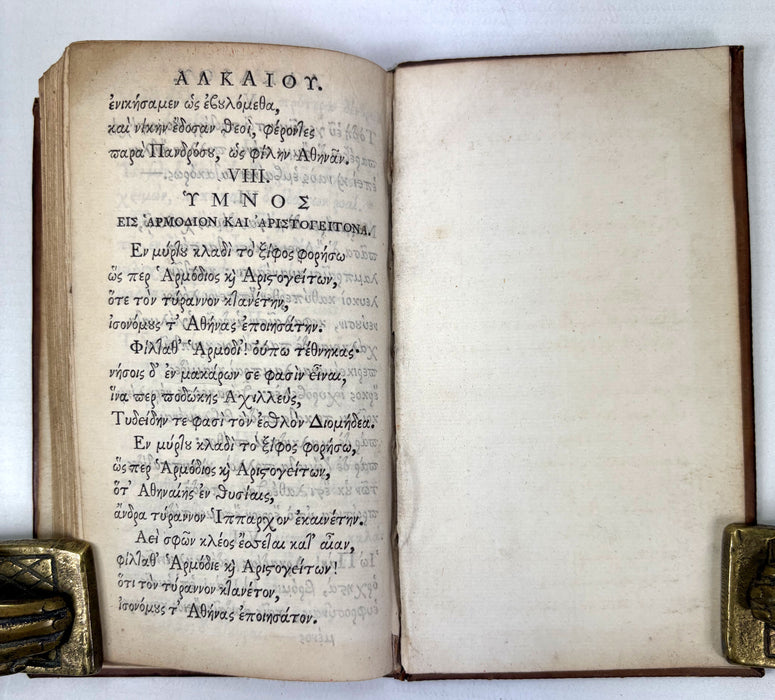 ΑΛΚΑΙΟΥ.
ἐνικήσαμεν ὡς ἐβουλόμεθα,
καὶ νίκην ἔδοσαν θεοὶ, φέροντες
παρὰ Πανδρόσου, ὡς φίλην Ἀθηνᾶν.
VIII.
ὙΜΝΟΣ
ΕΙΣ ἉΡΜΟΔΙΟΝ ΚΑΙ ἈΡΙΣΤΟΓΕΙΤΟΝΑ.
Εν μύρτου κλαδὶ τὸ ξίφος φορήσω
ὥς περ Ἁρμόδιος κὶ Αριστογείτων,
ὅτε τὸν τύραννον κτανέτην,
ἰσονόμους τ' Ἀθήνας ἐποιησάτην.
Φίλταθ' Ἁρμόδι'! οὔπω τέθνηκας·
νήσοις δ' ἐν μακάρων σε φασὶν εἶναι,
ἵνα περ ποδώκης Αχιλλεύς,
Τυδείδην τε φασι τὸν ἐσθλὸν Διομήδεα.
Εν μύρτου κλαδὶ τὸ ξίφος φορήσω,
ὥς περ Ἁρμόδιος κὶ Αριστογείτων,
ὅτ' Ἀθηναίης ἐν θυσίαις,
ἄνδρα τύραννον Ἵππαρχον ἐκαινέτην.
Αεὶ σφῶν κλέος ἔσσεται κατ' αἶαν,
φίλταθ' Ἁρμόδιε κὶ Αριστογείτων!
ὅτι τὸν τύραννον κτανέτον,
ἰσονόμους τ' Ἀθήνας ἐποιησατον.